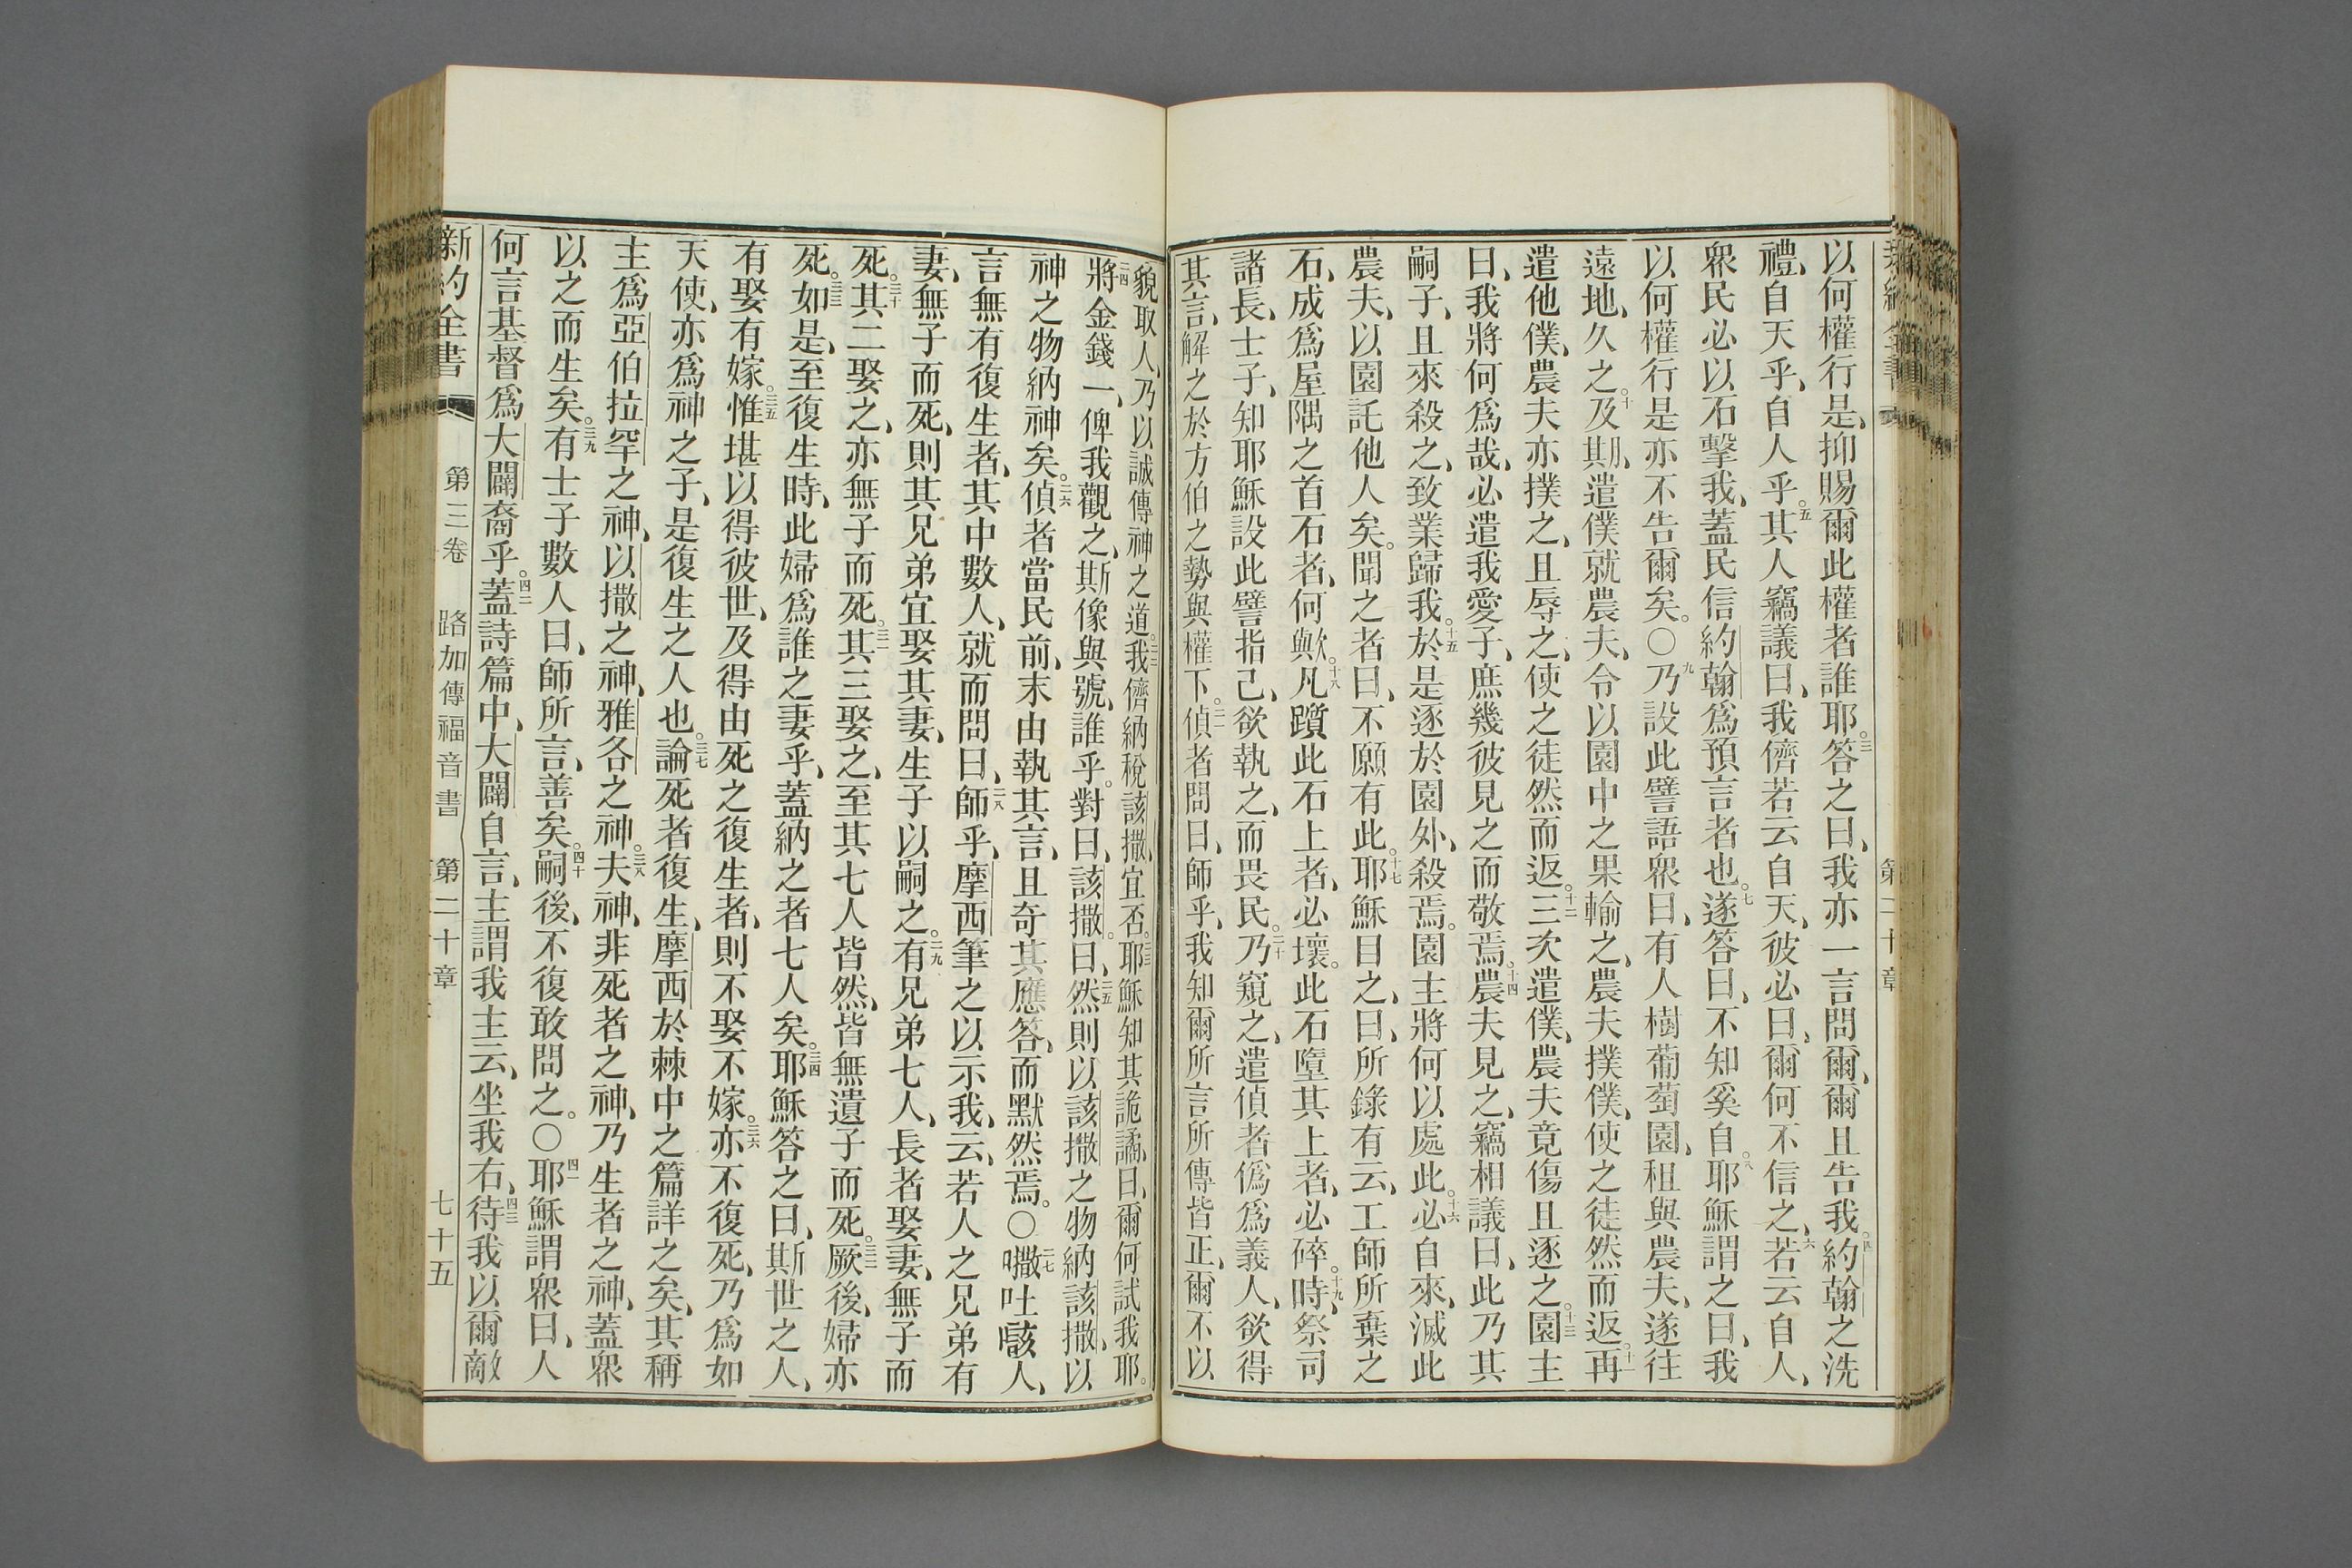 以何權行是、抑賜爾此權者誰耶。三答之曰、我亦一言問爾、爾且告我。四約翰之洗
禮、自天乎、自人乎。五其人竊議曰、我儕若云自天、彼必曰、爾何不信之、六若云自人、
衆民必以石擊我、蓋民信約翰爲預言者也。七遂答曰、不知奚自。八耶穌謂之曰、我
以何權行是、亦不告爾矣。〇九乃設此譬語衆曰、有人樹葡萄園、租與農夫、遂往
遠地、久之。十及期、遣僕就農夫、令以園中之果輸之、農夫撲僕、使之徒然而返。十一再
遣他僕、農夫亦撲之、且辱之、使之徒然而返。十二三次遣僕、農夫竟傷且逐之。十三園主
曰、我將何爲哉、必遣我愛子、庶幾彼見之而敬焉。十四農夫見之、竊相議曰、此乃其
嗣子、且來殺之、致業歸我。十五於是逐於園外、殺焉。園主將何以處此。十六必自來、滅此
農夫、以園託他人矣。聞之者曰、不願有此。十七耶穌目之、曰、所錄有云、工師所棄之
石、成爲屋隅之首石者、何歟。十八凡躓此石上者、必壞。此石墮其上者、必碎。十九時、祭司
諸長、士子、知耶穌設此譬指己、欲執之、而畏民。二十乃窺之、遣偵者僞爲義人、欲得
其言、解之於方伯之勢與權下。二一偵者問曰、師乎、我知爾所言所傳皆正、爾不以
貌取人、乃以誠傳神之道。二二我儕納稅該撒、宜否。二三耶穌知其詭譎、曰、爾何試我耶。
二四將金錢一、俾我觀之、斯像與號、誰乎。對曰、該撒。二五曰、然則以該撒之物納該撒、以
神之物納神矣。二六偵者當民前、末由執其言、且奇其應答、而默然焉。〇二七㘔吐㗏人、
言無有復生者、其中數人、就而問曰、二八師乎、摩西筆之以示我、云、若人之兄弟有
妻、無子而死、則其兄弟宜娶其妻、生子以嗣之。二九有兄弟七人、長者娶妻、無子而
死。三十其二娶之、亦無子而死。三一其三娶之、至其七人皆然、皆無遺子而死。三二厥後、婦亦
死。三三如是、至復生時、此婦爲誰之妻乎、蓋納之者七人矣。三四耶穌答之曰、斯世之人、
有娶有嫁。三五惟堪以得彼世、及得由死之復生者、則不娶不嫁。三六亦不復死、乃爲如
天使、亦爲神之子、是復生之人也。三七論死者復生、摩西於棘中之篇詳之矣、其稱
主爲亞伯拉罕之神、以撒之神、雅各之神。三八夫神、非死者之神、乃生者之神、蓋衆
以之而生矣。三九有士子數人曰、師所言、善矣。四十嗣後、不復敢問之。〇四一耶穌謂衆曰、人
何言基督爲大闢裔乎。四二蓋詩篇中、大闢自言、主謂我主云、坐我右、四三待我以爾敵
新約全書 第三卷 路加傳福音書 第二十章 七十五